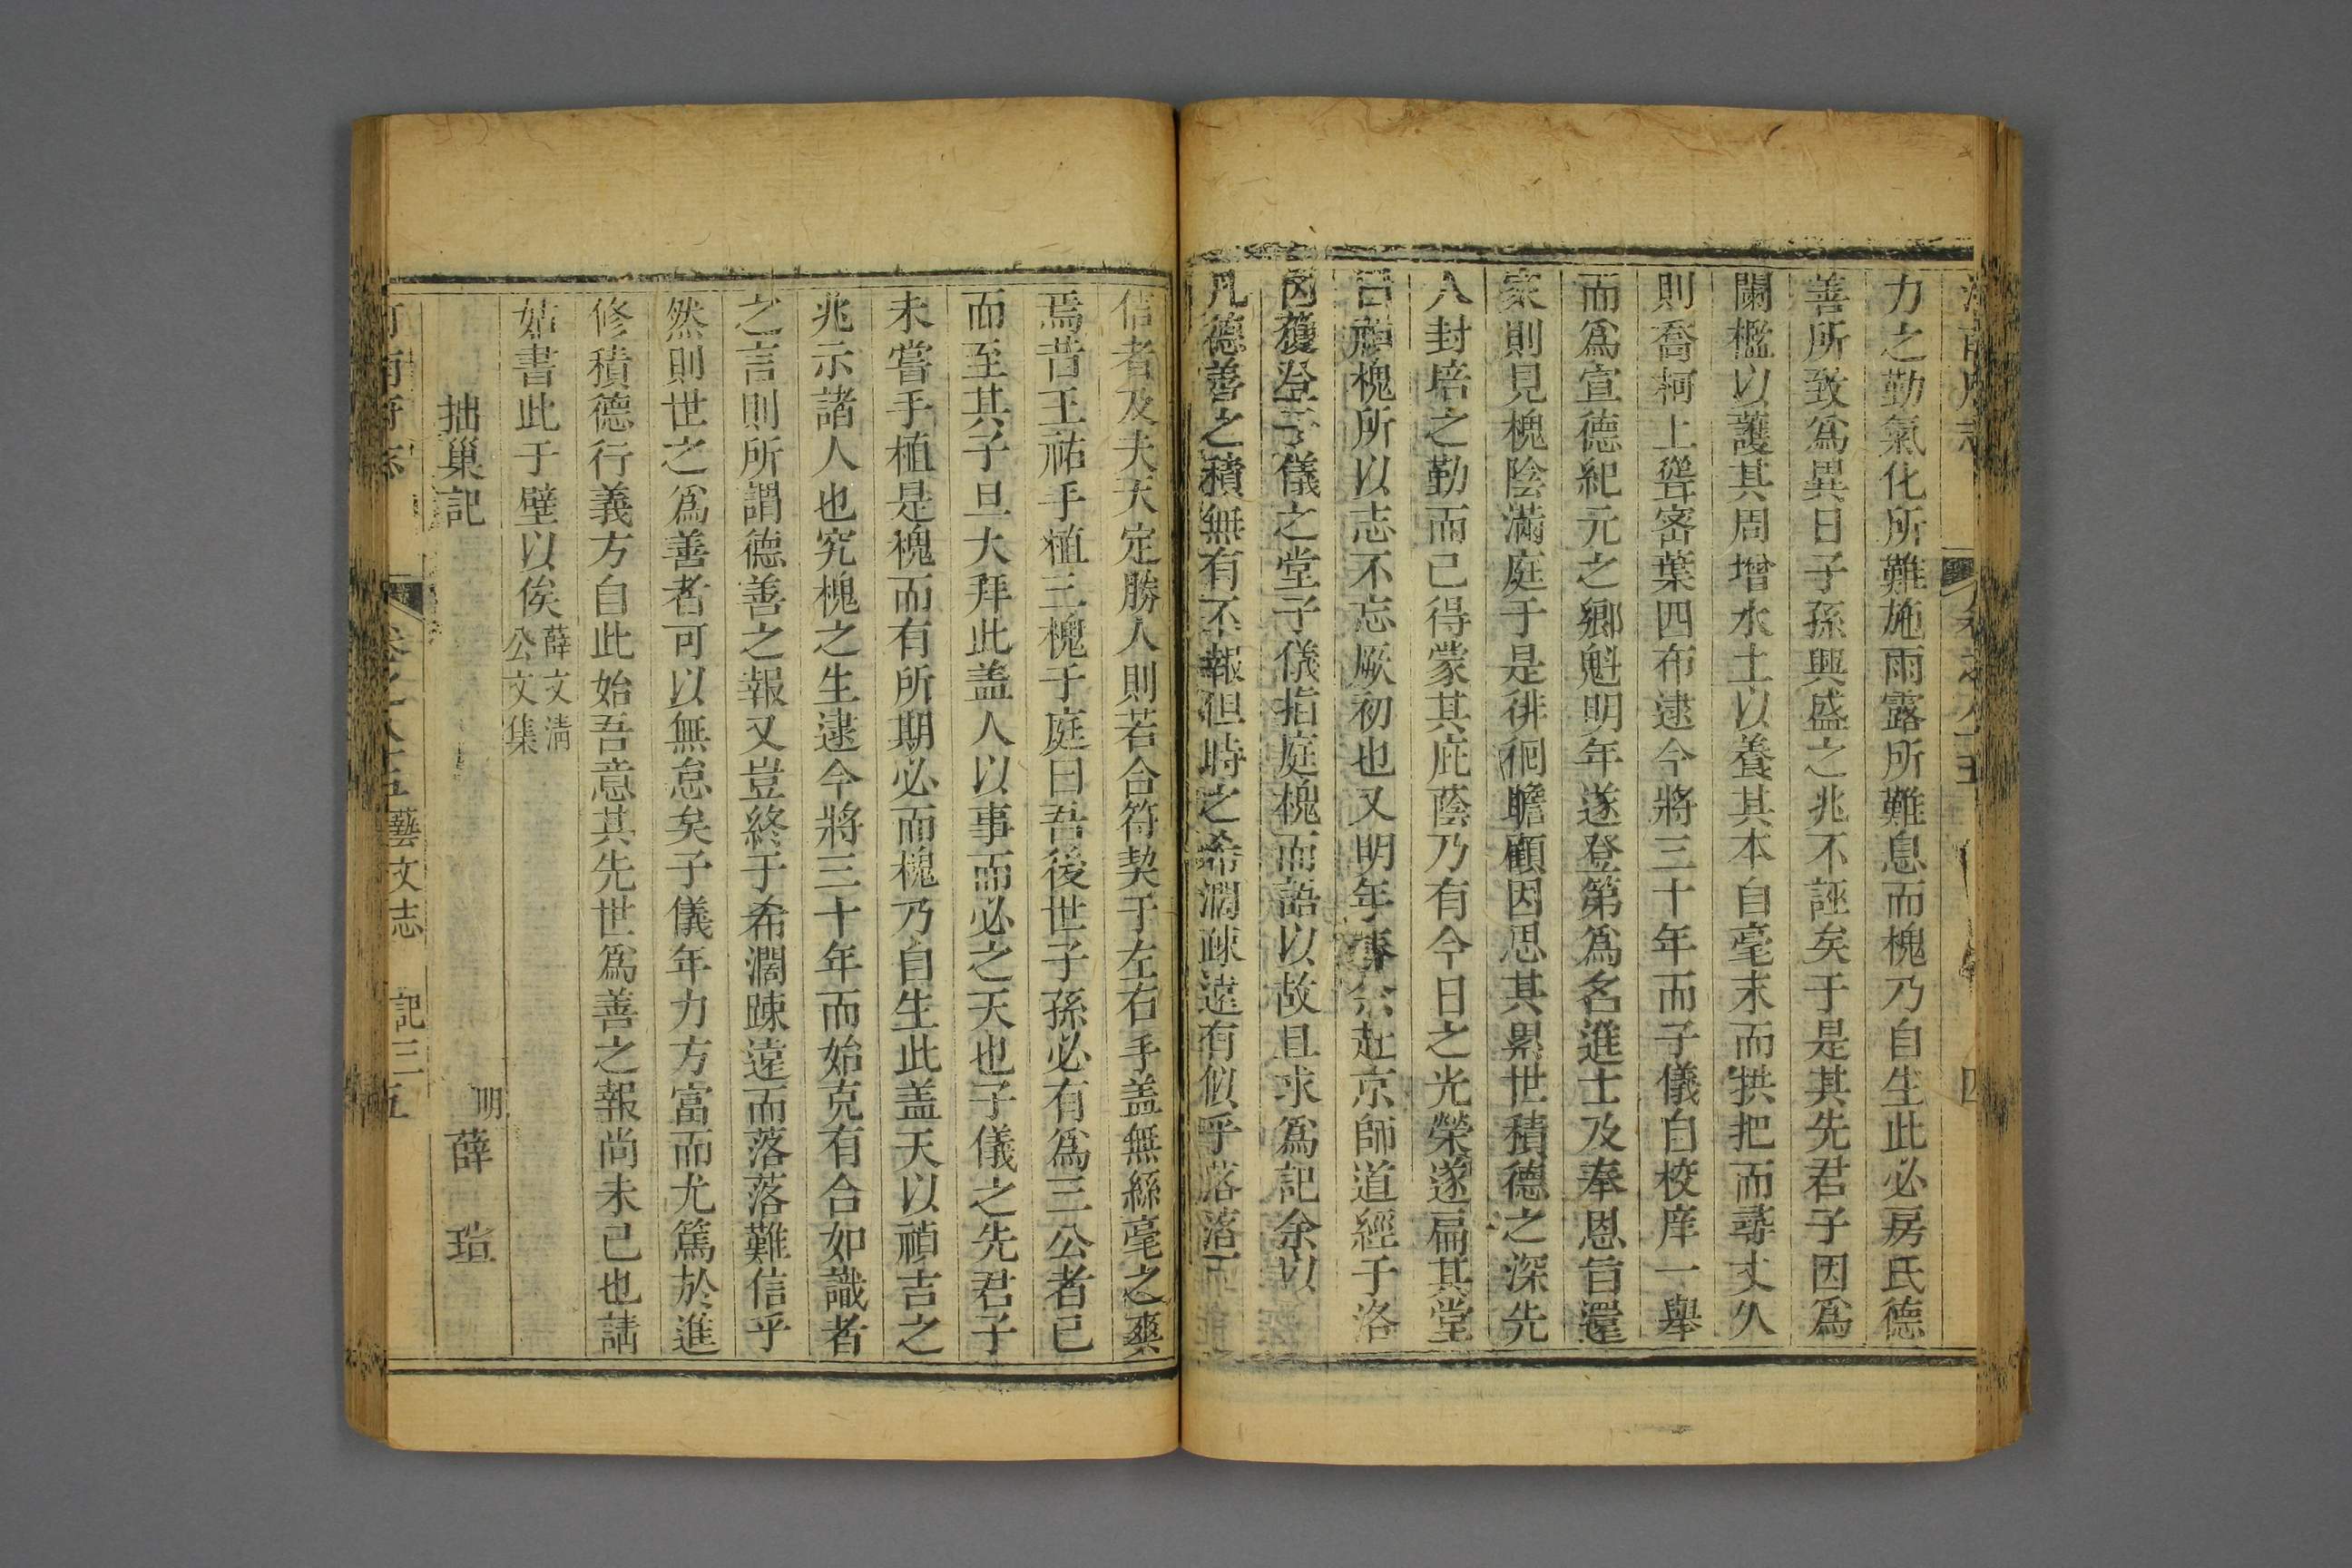 力之勤氣化所難施雨露所難息而槐乃自生此必房氏德
善所致爲異日子孫興盛之兆不誣矣于是其先君子因爲
闌檻以護其周增水土以養其本自毫末而拱把而尋丈久
則喬柯上聳宻葉四布逮今將三十年而子儀自校庠一舉
而爲宣德紀元之鄉魁明年遂登第爲名進士及奉恩旨還
家則見槐陰滿庭于是徘徊瞻顧因思其累世積德之深先
人封培之勤而已得蒙其庇蔭乃有今日之光榮遂扁其堂
曰槐所以志不忘厥初也又明年余赴京師道經于洛
因獲登子儀之堂子儀指庭槐而語以故且求爲記余以
凡德善之積無有不報但時之希濶疎遠有似乎落落
信者及夫天定勝人則若合符契于左右手盖無絲毫之爽
焉昔王祐手植三槐于庭曰吾後世子孫必有爲三公者已
而至其子旦大拜此盖人以事而必之天也子儀之先君子
未嘗手植是槐而有所期必而槐乃自生此盖天以禎吉之
兆示諸人也究槐之生逮今將三十年而始克有合如識者
之言則所謂德善之報又豈終于希濶疎遠而落落難信乎
然則世之爲善者可以無怠矣子儀年力方富而尤篤於進
修積德行義方自此始吾意其先世爲善之報尚未已也請
姑書此于壁以俟 薛文淸公文集
拙巢記 明 薛 瑄
河南府志 卷之八十五 藝文志 記三 五